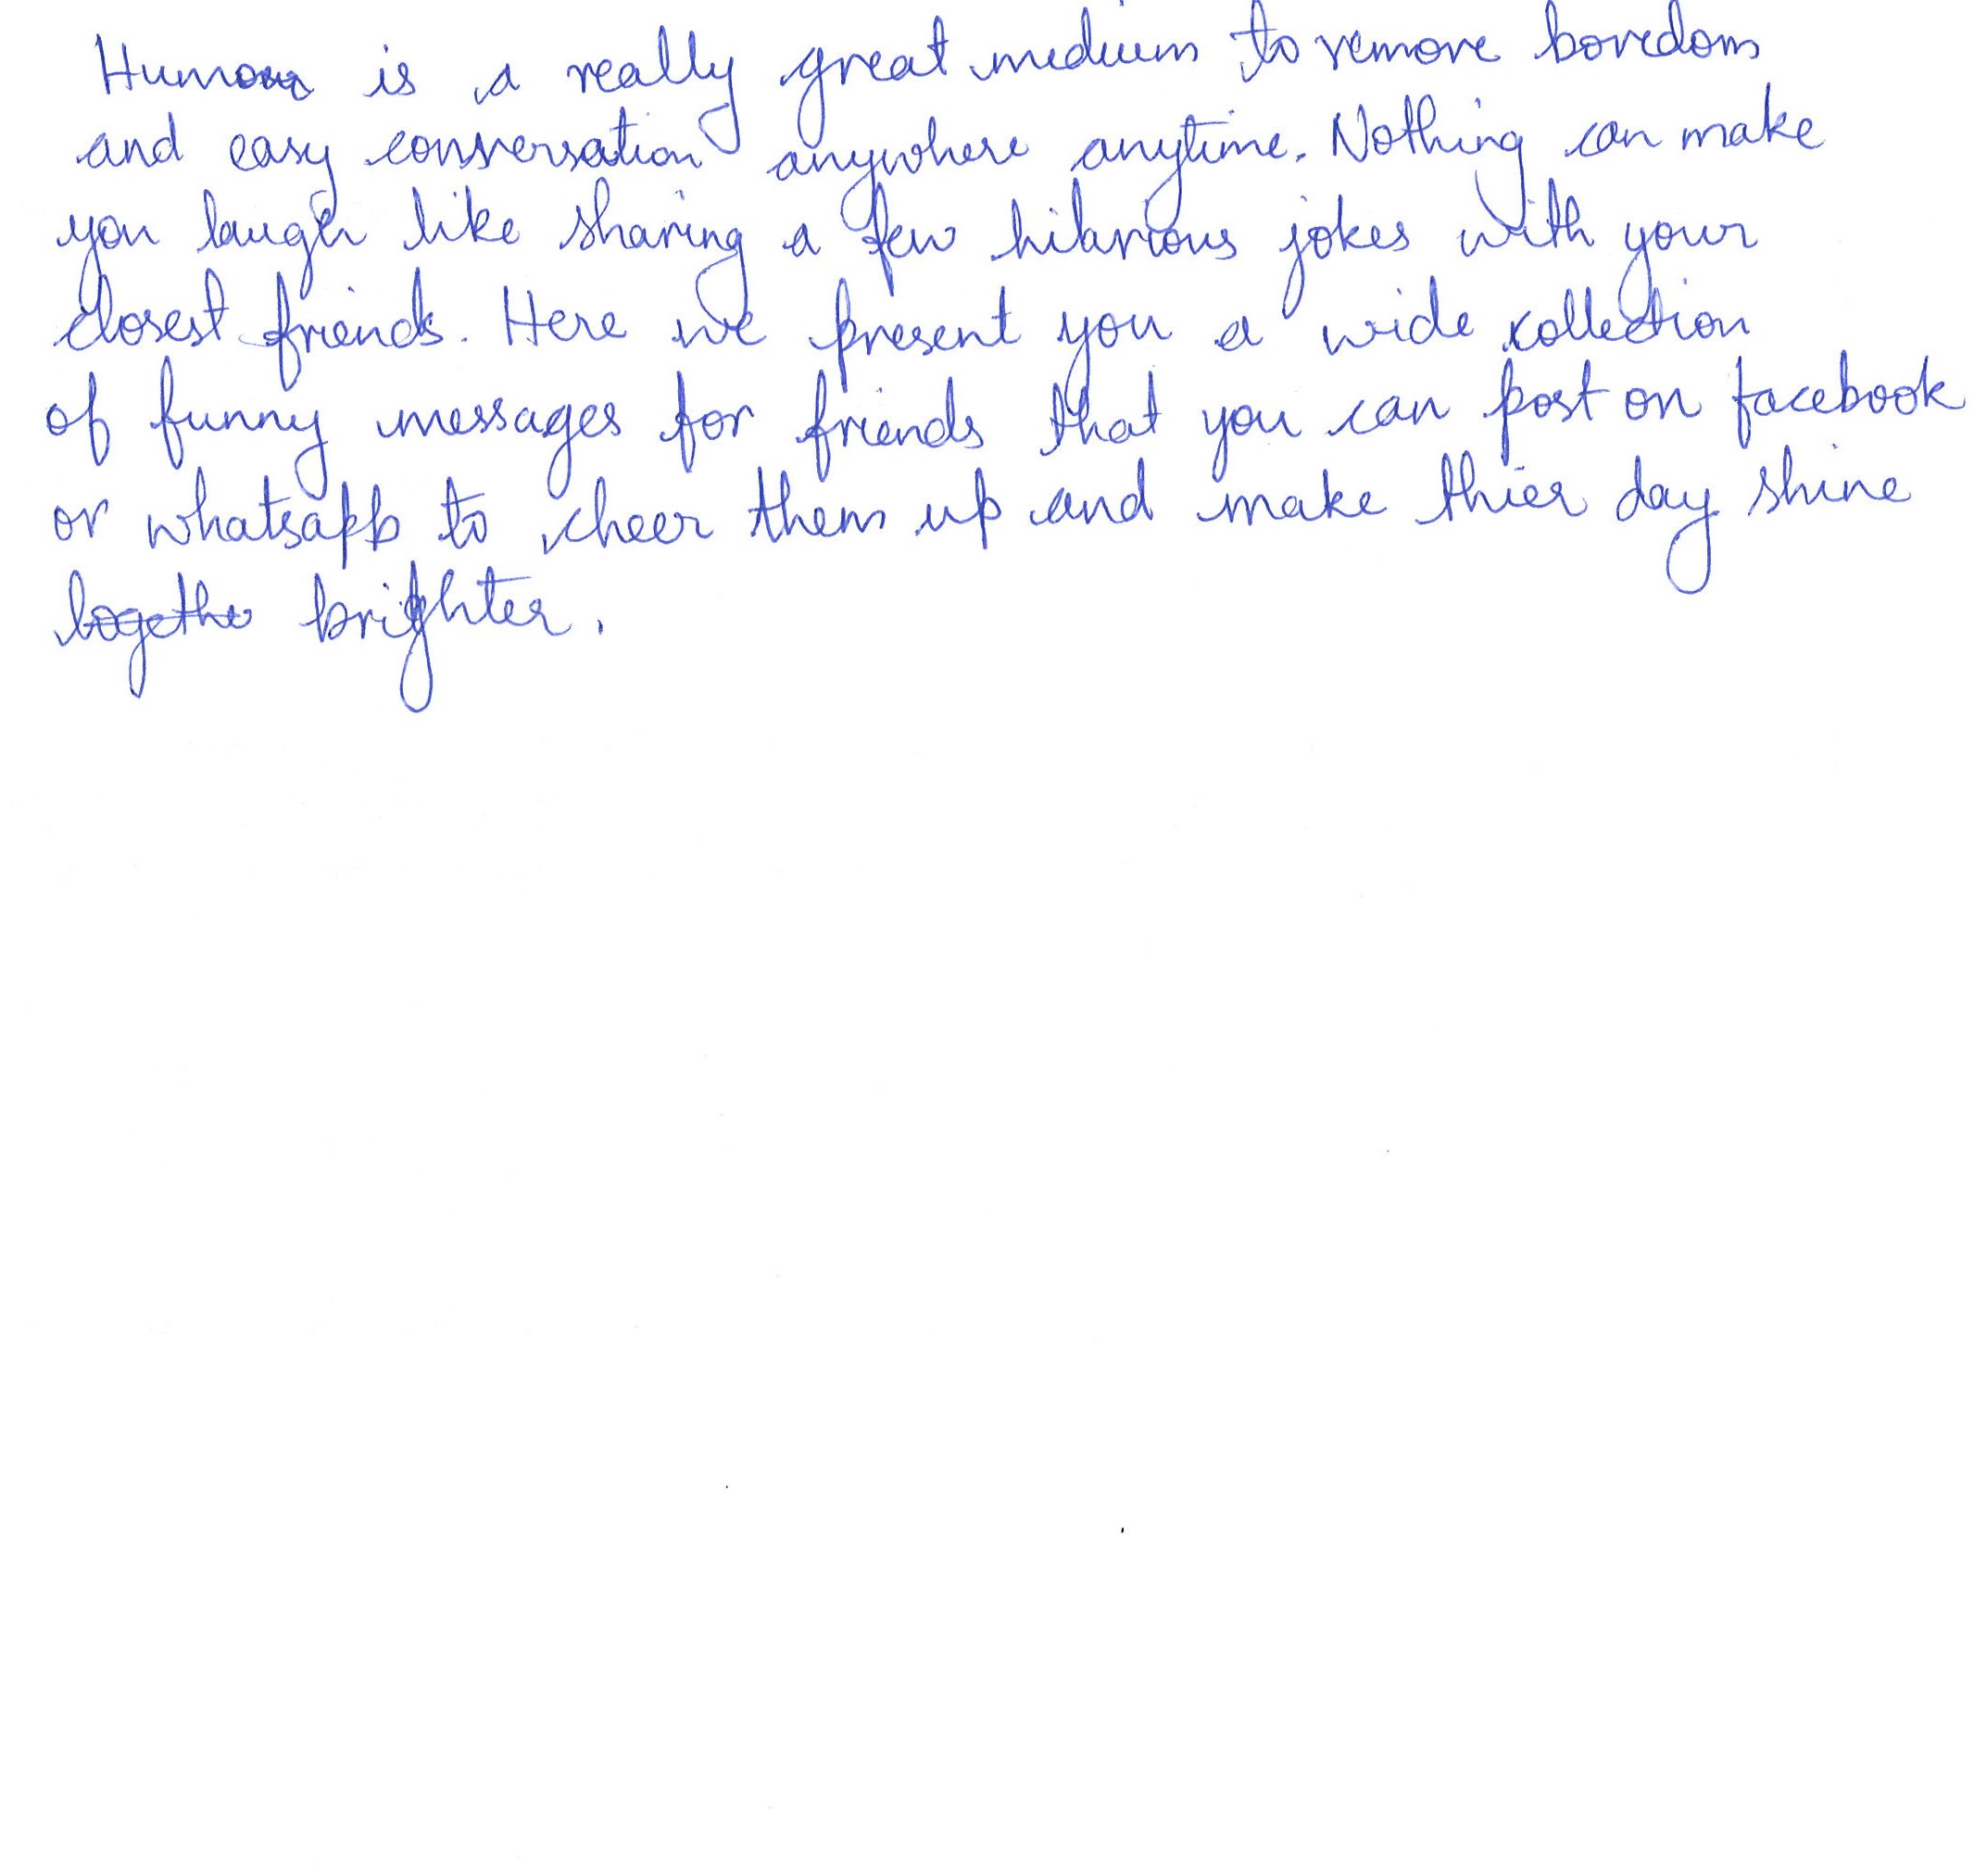 Humour is a really great medium to remove boredom
and easy conversation anywhere anytime. Nothing can make
you laugh like sharing a few hilarious jokes with your
closest friends. Here we present you a wide collection
of funny messages for friends that you can post on facebook
or whatsapp to cheer them up and make thier day shine
brighter.